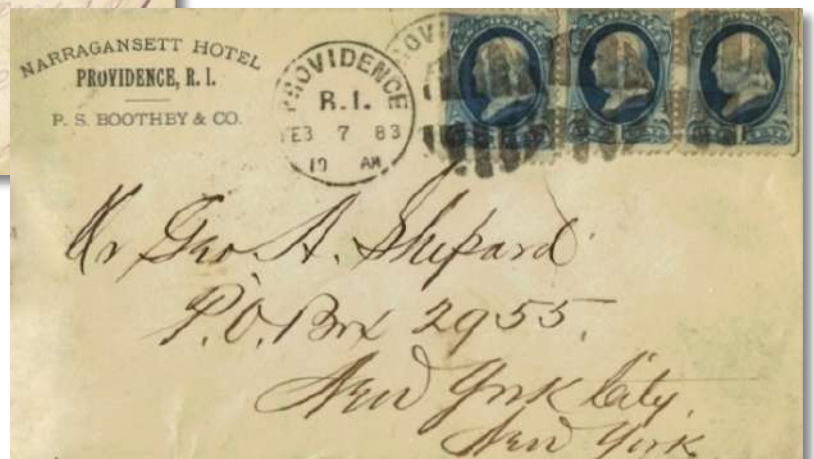 NARRAGANSETT HOTEL
PROVIDENCE, R. I.
P. S. BOOTHBY & CO.
PROVIDENCE
R.I.
FEB 7 83
10 AM
Mr Geo A. Shepard
P.O. Box 2955.
New York City.
New York